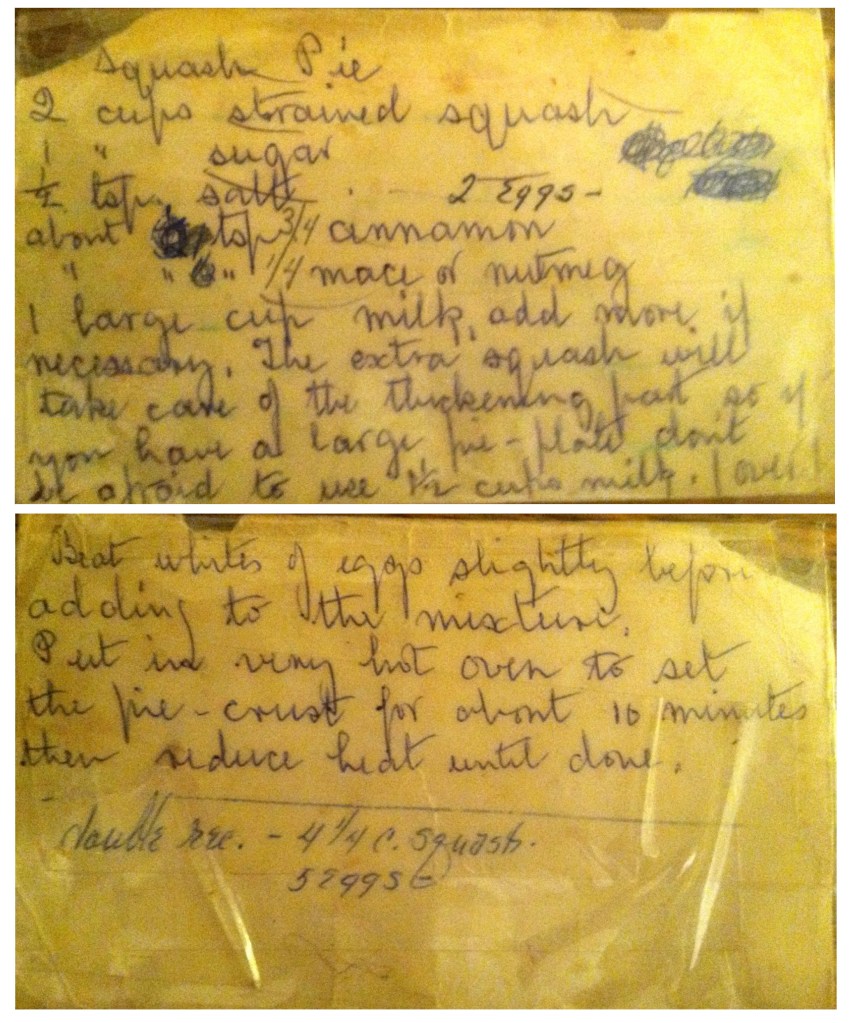 Squash Pie
2 cups strained squash
1 " sugar
1/2 tsp. salt - 2 Eggs -
about tsp 3/4 cinnamon
" " " 1/4 mace or nutmeg
1 large cup milk, add more if
necessary. The extra squash will
take care of the thickening part so if
you have a large pie-plate don't
be afraid to use 1 1/2 cups milk. (over)
Beat whites of eggs slightly before
adding to the mixture.
Put in very hot oven to set
the pie-crust for about 10 minutes
then reduce heat until done.
double rec. - 4 1/4 c. squash.
5 eggs